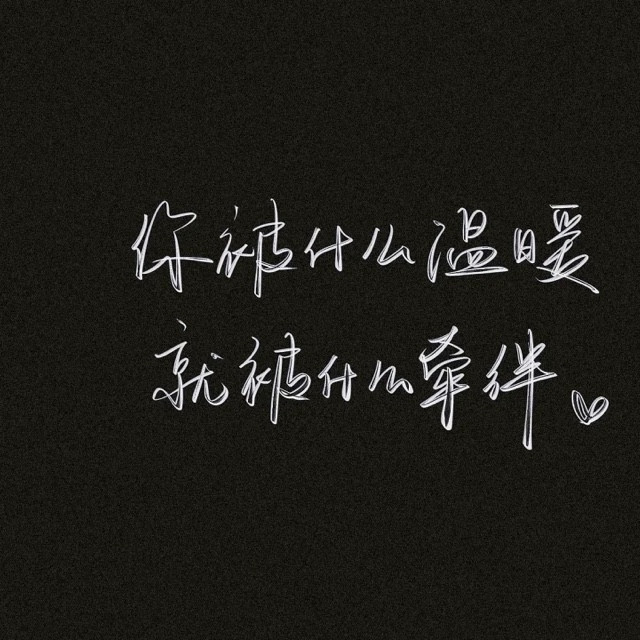 你被什么温暖
就被什么牵绊